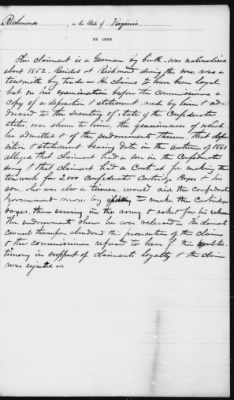 Richmond in the State of Virginia
BY CHER.
This claimant is a German by birth. was naturalized
about 1852. Resided at Richmond during the war. was a
tinsmith by trade. He claims to have been loyal
but on his examination before the commissioners a
copy of a deposition & statement made by him & ad-
dressed to the Secretary of State of the Confederate
States, was shown to him, the genuineness of which
he admitted & of the endorsement thereon. That depo-
sition & statement bearing date in the autumn of 1861
alleged that claimant had a son in the Confederate
army & that claimant had a Contract for making the
tin work for 2,000 Confederate Cartridge Boxes & his
son, who was also a tinner, would aid the Confederate
government more by helping to make the Cartridge
boxes, than serving in the army & asked for his release
the endorsement show he was released. The claimants
counsel thereupon abandoned the prosecution of the claim
& the commissioners refused to hear further
timony in support of claimants loyalty & the claim
was rejected